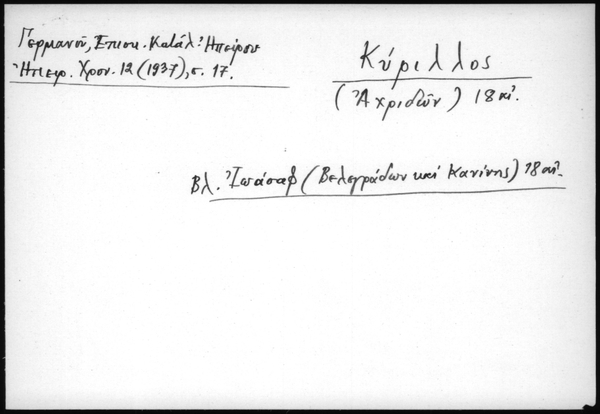 Γερμανοῦ, Ἐπισκ. Κατάλ. Ἠπείρου
Ἠπειρ. Χρον. 12 (1937), σ. 17.
Κύριλλος
(Ἀχριδῶν) 18 αἰ.
Βλ. Ἰωάσαφ (Βελεγράδων καὶ Κανίνης) 18 αἰ.